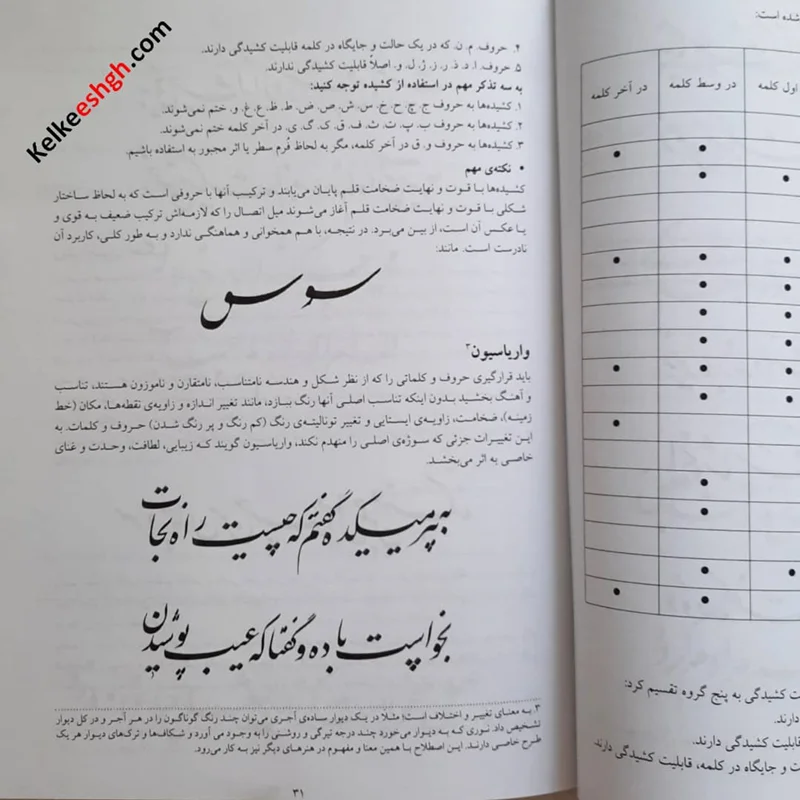 Kelkeeshgh.com
۴. حروف. م. ن. که در یک حالت و جایگاه در کلمه قابلیت کشیدگی دارند.
۵. حروف. ا. د. ذ. ر. ز. ژ. ل. و. اصلاً قابلیت کشیدگی ندارند.
به سه تذکر مهم در استفاده از کشیده توجه کنید:
۱. کشیده‌ها به حروف ج. چ. ح. خ. س. ش. ص. ض. ط. ظ. ع. غ. و. ختم نمی‌شوند.
۲. کشیده‌ها به حروف ب. پ. ت. ث. ف. ق. ک. گ. ی. در آخر کلمه ختم نمی‌شوند.
۳. کشیده‌ها به حروف و. ق در آخر کلمه، مگر به لحاظ فُرم سطر یا اثر مجبور به استفاده باشیم.
• نکته‌ی مهم
کشیده‌ها بـا قـوت و نهایت ضخامت قلـم پایان می‌یابند و ترکیـب آنها با حروفی است که به لحاظ ساختار
شکلی بـا قـوت و نهایت ضخامت قلـم آغاز می‌شوند میل اتصال را که لازمه‌اش ترکیب ضعیف بـه قوی و
یـا عکس آن است، از بین می‌بـرد. در نتیجه، با هـم همخوانی و هماهنگی ندارد و به طور کلـی، کاربرد آن
نادرست است. مانند:
سوس
واریاسیون۳
باید قرارگیری حروف و کلماتی را که از نظر شکل و هندسه نامتناسب، نامتقارن و ناموزون هستند، تناسب
و آهنگ بخشید بدون اینکه تناسب اصلی آنها رنگ ببازد، مانند تغییر اندازه و زاویه‌ی نقطه‌ها، مکان (خط
زمینه)، ضخامت، زاویه‌ی ایستایی و تغییر تونالیته‌ی رنگ (کم رنگ و پر رنگ شدن) حروف و کلمات. به
این تغییرات جزئی که سوژه‌ی اصلی را منهدم نکند، واریاسیون گویند که زیبایی، لطافت، وحدت و غنای
خاصی به اثر می‌بخشد.
به پیر میکده گفتم که چیست راه نجات
بخواست باده و گفتا که عیب پوشیدن
۳. به معنای تغییر و اختلاف است؛ مثلا در یک دیوار ساده‌ی آجری می‌توان چند رنگ گوناگون را در هر آجر و در کل دیوار
تشخیص داد. نوری که به دیوار می‌خورد چند درجه تیرگی و روشنی را به وجود می آورد و شکاف‌ها و ترک‌های دیوار هر یک
طرح خاصی دارند. این اصطلاح با همین معنا و مفهوم در هنرهای دیگر نیز به کار می‌رود.
۳۱
شده است:
اول کلمه در وسط کلمه در آخر کلمه
ت کشیدگی به پنج گروه تقسیم کرد:
دارند.
قابلیت کشیدگی دارند.
ت و جایگاه در کلمه، قابلیت کشیدگی دارند.